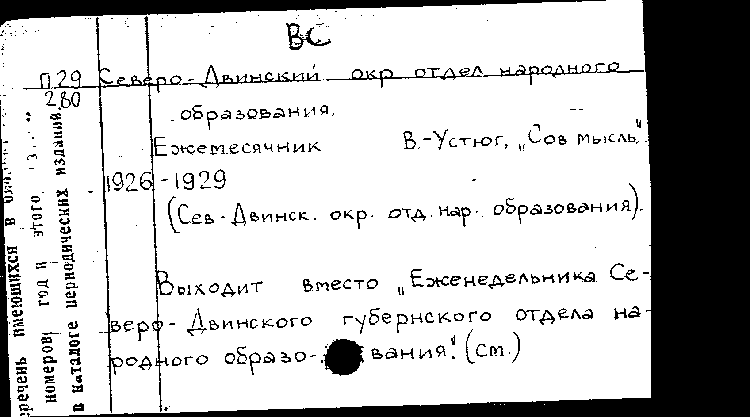 ВС
П.29 Северо-Двинский окр отдел народного
280
образования.
Ежемесячник В.-Устюг, „Сов мысль"
1926-1929
(Сев-Двинск. окр. отд. нар. образования).
Выходит вместо „Еженедельника Се-
веро-Двинского губернского отдела на-
родного образо- вания". (см.)
речень имеющихся в
номеров, год и этого "З..."
в каталоге периодических изданий